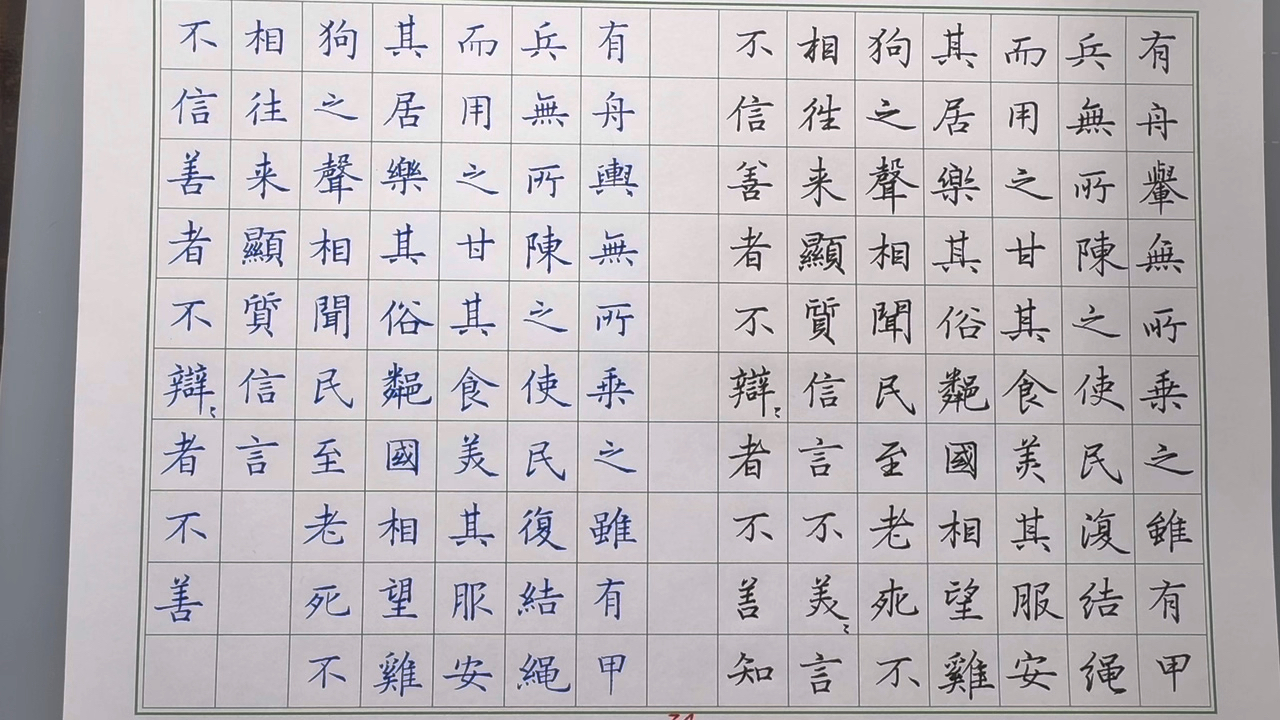 有舟轝無所乗之雖有甲
兵無所陳之使民復結繩
而用之甘其食美其服安
其居樂其俗鄰國相望雞
狗之聲相聞民至老死不
相往来顯質信言不美〻言
不信善者不辯〻者不善知
有舟輿無所乗之雖有甲
兵無所陳之使民復結繩
而用之甘其食美其服安
其居樂其俗鄰國相望雞
狗之聲相聞民至老死不
相往来顯質信言
不信善者不辯〻者不善